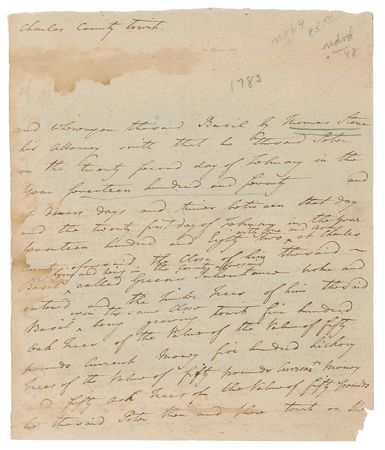 Charles County towit.
1783
and whereupon the said Basil by Thomas Stone
his Attorney saith that he the said Peter
on the twenty second day of February in the
Year seventeen hundred and seventy and
at divers days and times between that day
and the twenty first day of February in the Year
seventeen hundred and Eighty two with force and arms at Charles
County aforesaid the Close of him the said
lying and being in the County aforesaid
Basil called Greens Inheritance broke and
entered and the timber Trees of him the said
Basil upon the same Close growing towit five hundred
Oak Trees of the Value of fifty
pounds Current Money five hundred hickory
Trees of the Value of fifty pounds Current Money
and fifty ash Trees of the Value of fifty pounds
he the said Peter then and there towit on the